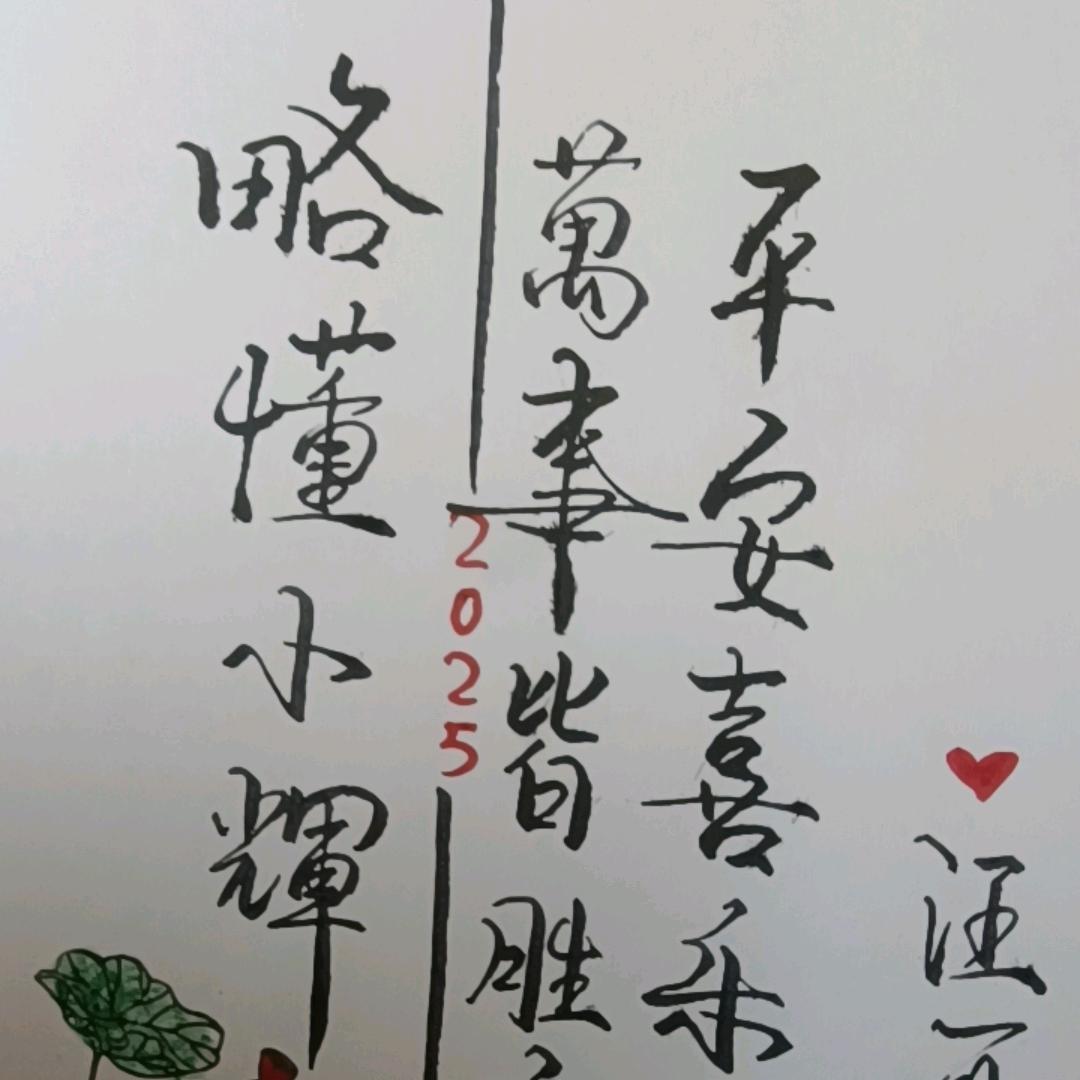 汪
平安喜乐
萬事皆胜
2025
略懂小輝